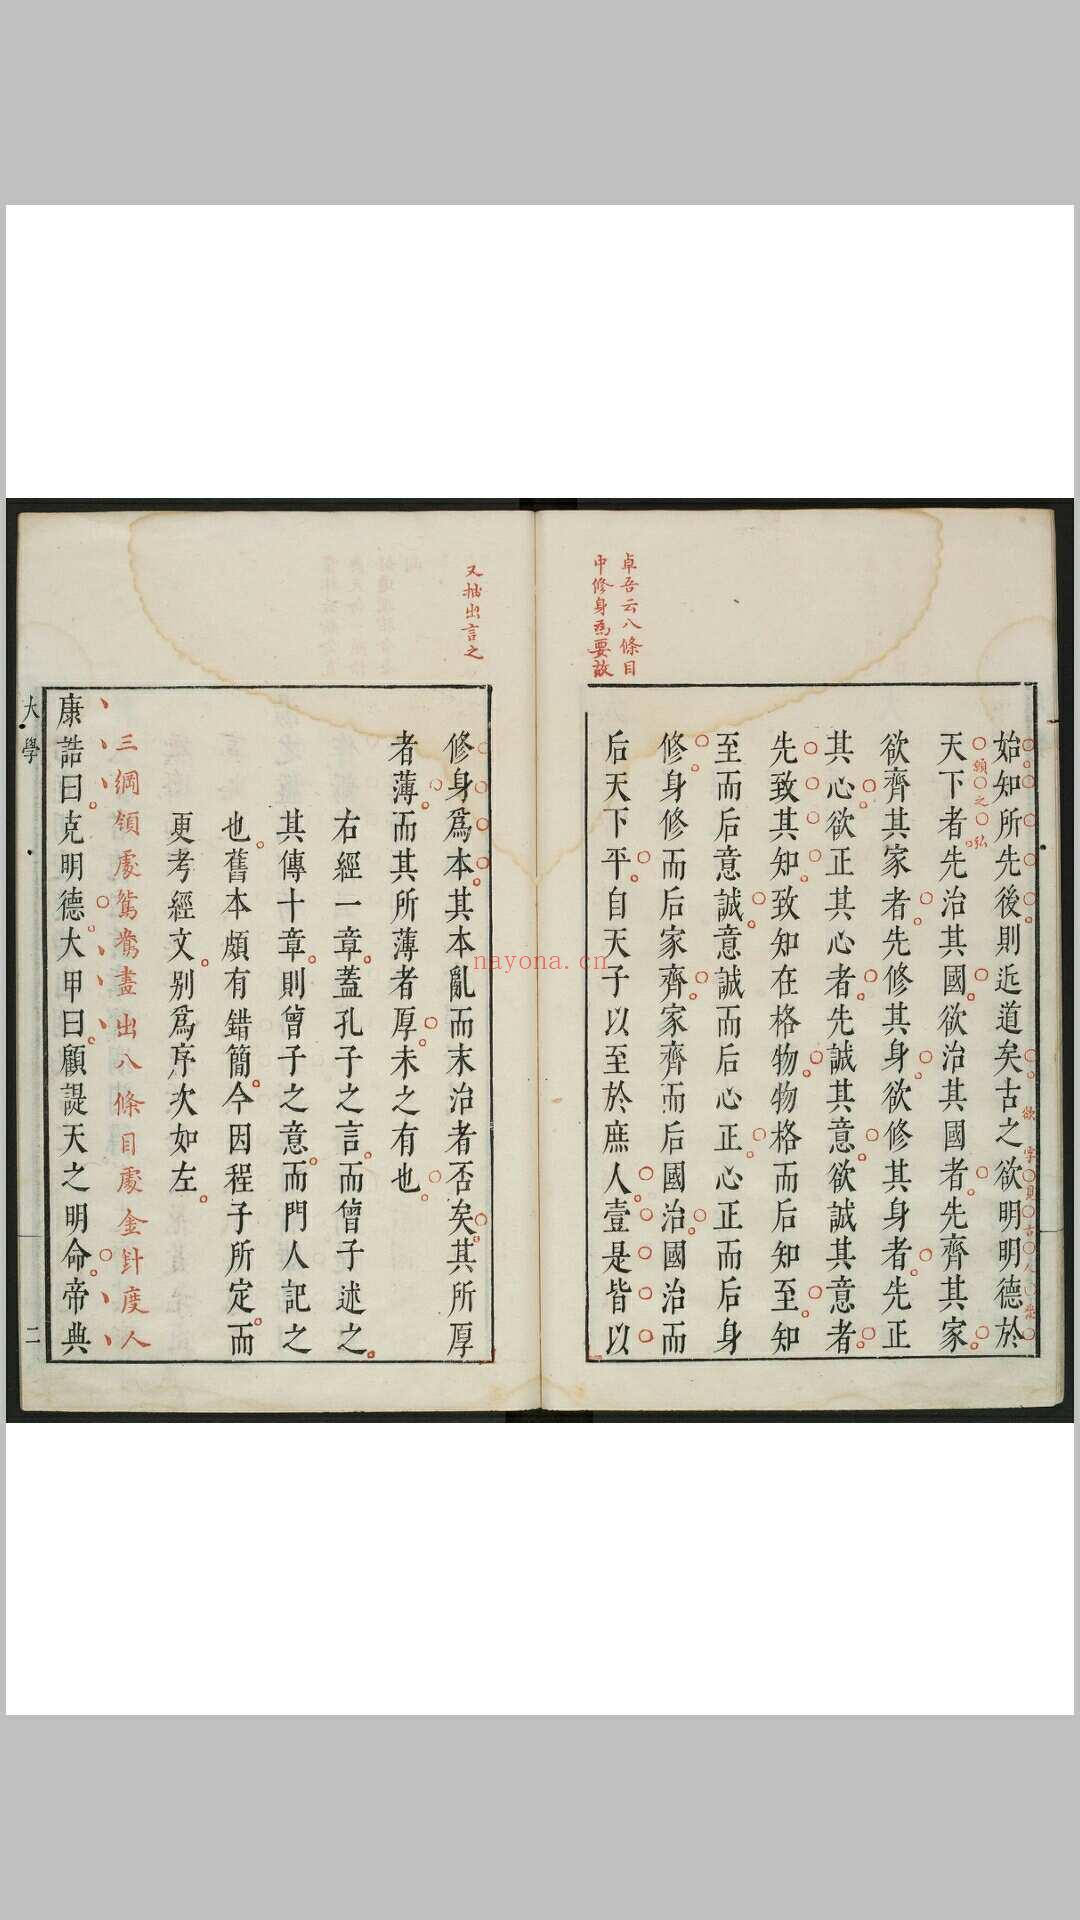 卓吾云八條目
中修身爲要故
始知所先後則近道矣古之欲明明德於
欲字見古人
天下者先治其國欲治其國者先齊其家
欲齊其家者先修其身欲修其身者先正
其心欲正其心者先誠其意欲誠其意者
先致其知致知在格物物格而后知至知
至而后意誠意誠而后心正心正而后身
修身修而后家齊家齊而后國治國治而
后天下平自天子以至於庶人壹是皆以
又抽出言之
修身爲本其本亂而末治者否矣其所厚
者薄而其所薄者厚未之有也
右經一章蓋孔子之言而曾子述之
其傳十章則曾子之意而門人記之
也舊本頗有錯簡今因程子所定而
更考經文別爲序次如左
三綱領處鴛鴦畫出八條目處金針度人
康誥曰克明德大甲曰顧諟天之明命帝典
大學
二
nayona.cn